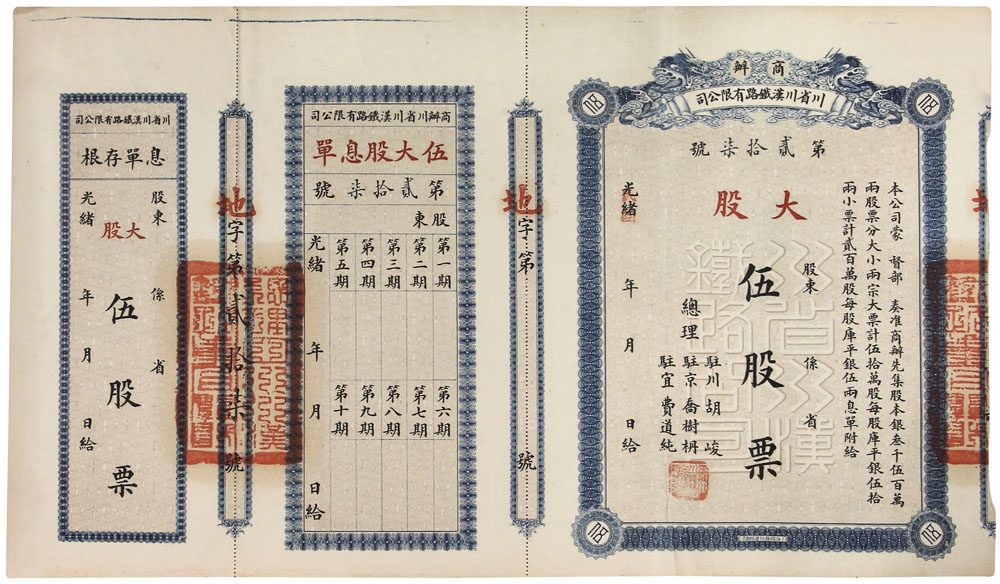 商辦
川省川漢鐵路有限公司
第貳拾柒號
大股
本公司蒙 督部 奏准商辦先集股本銀叁千伍百萬
兩股票分大小兩宗大票計伍拾萬股每股庫平銀伍拾
兩小票計貳百萬股每股庫平銀伍兩息單附給
股東 係 省
伍股票
總理
駐川胡峻
駐京喬樹枬
駐宜費道純
光緒 年 月 日給
地字第 號
商辦川省川漢鐵路有限公司
伍大股息單
第貳拾柒號
股東
第一期
第二期
第三期
第四期
第五期
第六期
第七期
第八期
第九期
第十期
光緒 年 月 日給
地字第貳拾柒號
川省川漢鐵路有限公司
息單存根
股東 係 省
大股
伍股票
光緒 年 月 日給